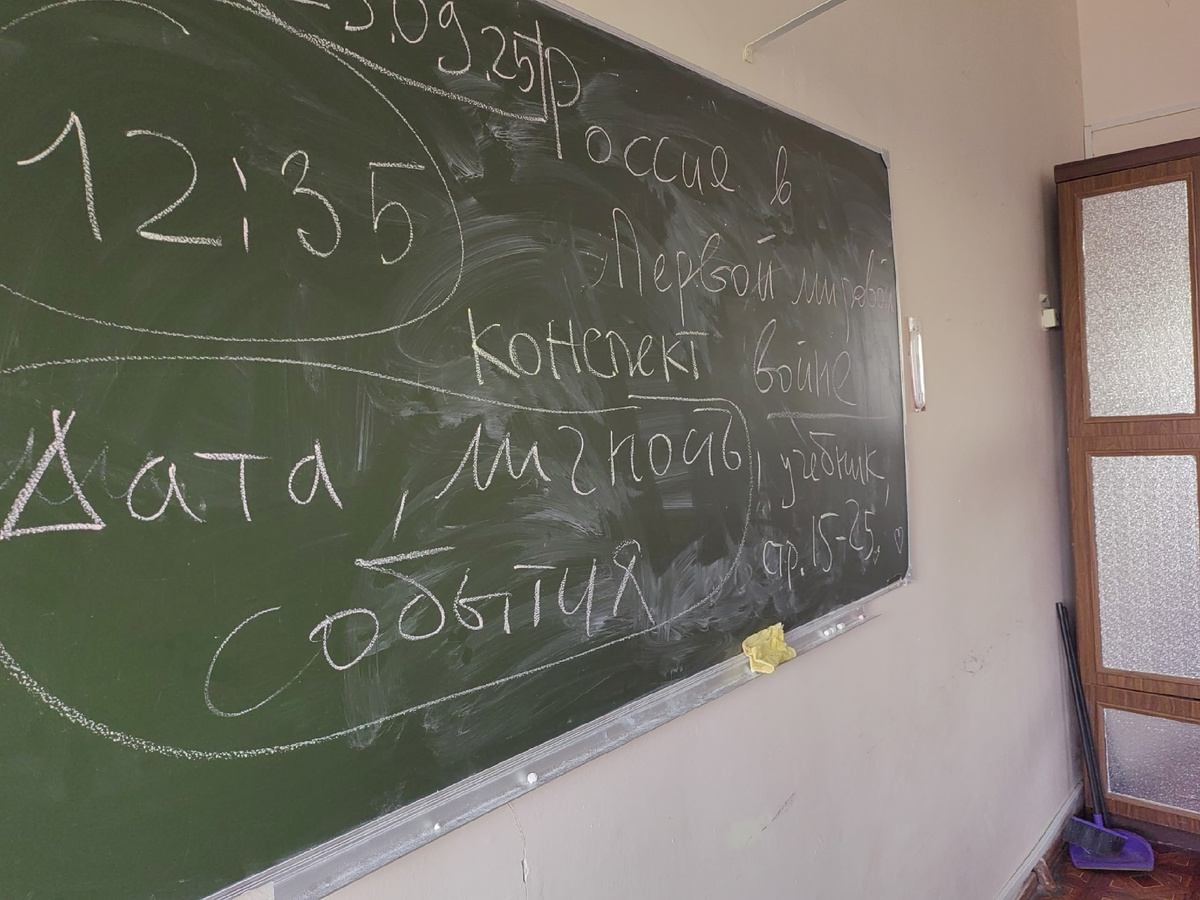 3.09.25
12:35
Россие в
Первой мировой
войне
конспект
Дата, личность,
события
учебник,
стр. 15-25.